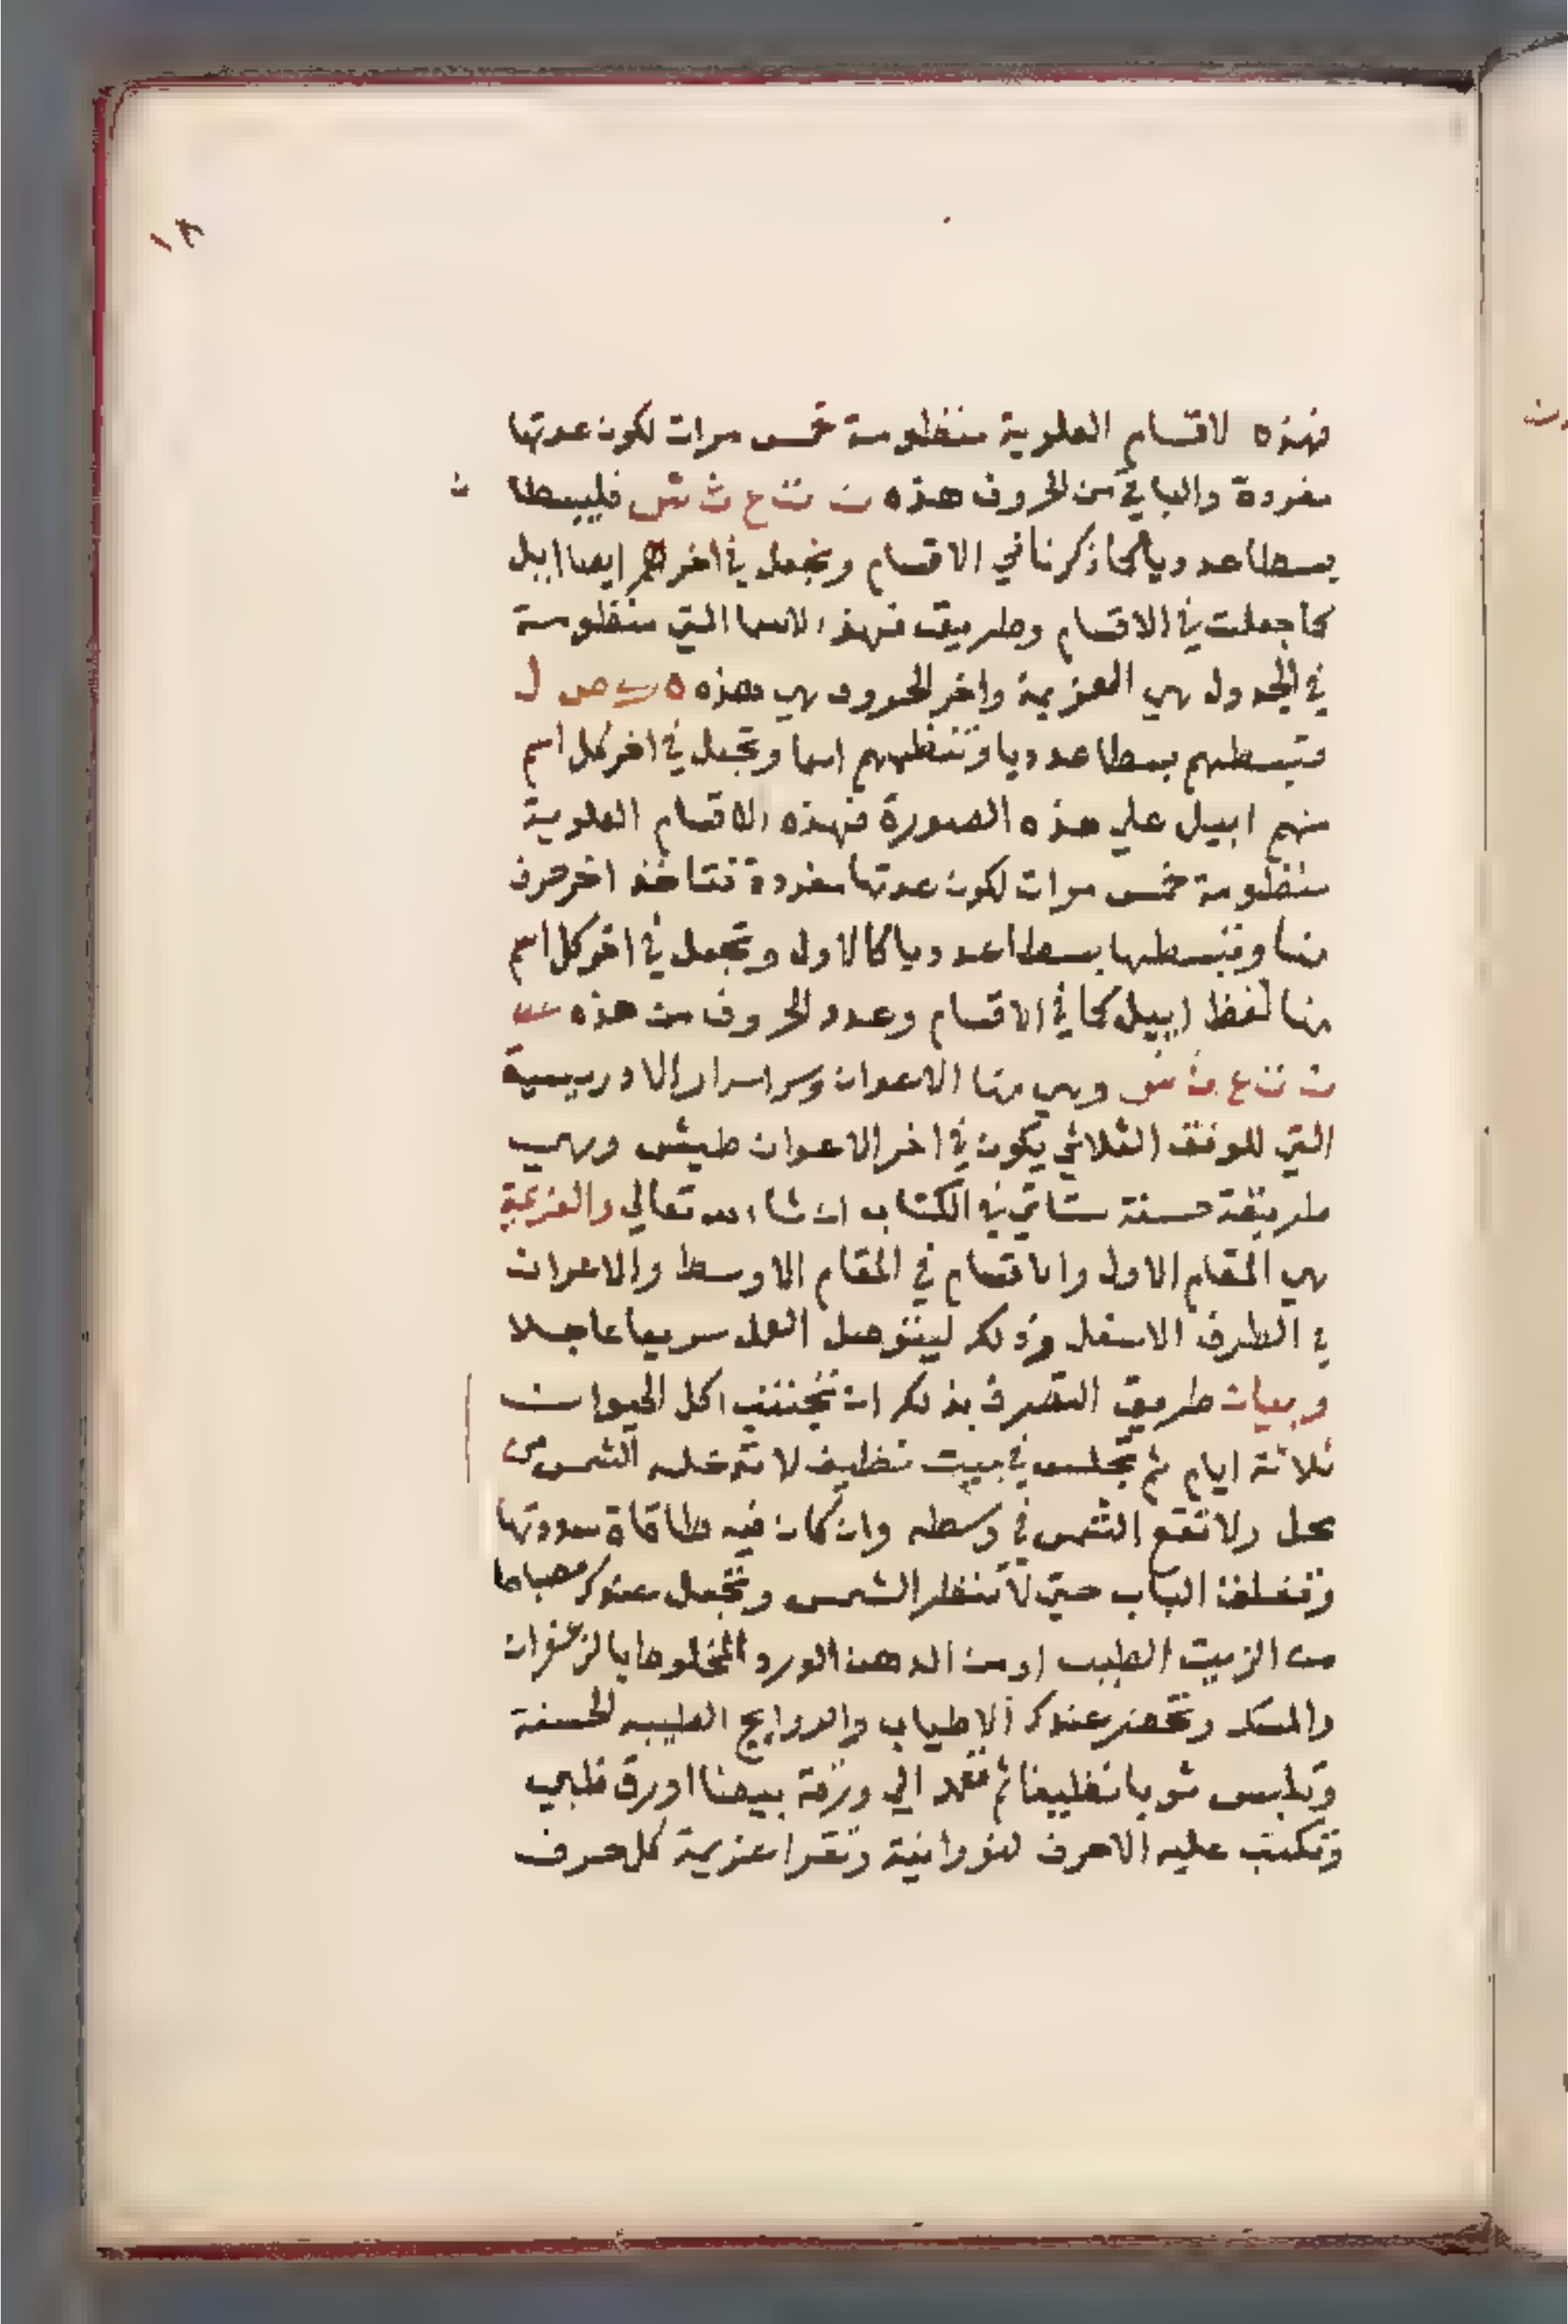 ١٨
فهذه لاقسام العلوية منظومة خمس مرات لكون عدتها
مفردة والباقي من الحروف هذه ت ث ع ث ش فليبسطا ث
بسطا عدديا كما ذكرنا في الاقسام وتجعل في اخرهم ايضا اييل
كما جعلت في الاقسام وطريق فهذه الاسما التي منظومة
في الجدول هي العزيمة واخر الحروف هي هذه ه ي ص ل
فتبسطهم بسطا عدديا وتنظمهم اسما وتجعل في اخر كل اسم
منهم اييل علي هذه الصورة فهذه الاقسام العلوية
منظومة خمس مرات لكون عدتها مفردة فتاخذ اخر حرف
منها وتبسطها بسطا عدديا كالاول وتجعل في اخر كل اسم
منها لفظ اييل كما في الاقسام وعدد الحروف من هذه
ت ث ع ث ش وهي منها الاعوان وسر اسرار الادريسية
التي للوفق الثلاثي يكون في اخر الاعوان طيش وهي
طريقة حسنة ستاتي في الكتاب ان شاء الله تعالي والعزيمة
هي المقام الاول والاقسام في المقام الاوسط والاعوان
في الطرف الاسفل وذلك ليتوصل العمل سريعا عاجلا
وبيان طريق التصرف بذلك ان تجتنب اكل الحيوان
ثلاثة ايام ثم تجلس في بيت نظيف لا تدخله الشمس من
محل ولا تقع الشمس في وسطه وان كان فيه طاقاة سددتها
وتغلق الباب حتي لا تنظر الشمس وتجعل عندك مصباحا
من الزيت الطيب او من الدهن الورد المخلوطا بالزعفران
والمسك وتحضر عندك الاطياب والروايح الطيبه الحسنة
وتلبس ثوبا نظيفا ثم تعمد الي ورقة بيضا او رق ظبي
وتكتب عليه الاحرف لنورانية وتقرا عزيمة كل حرف